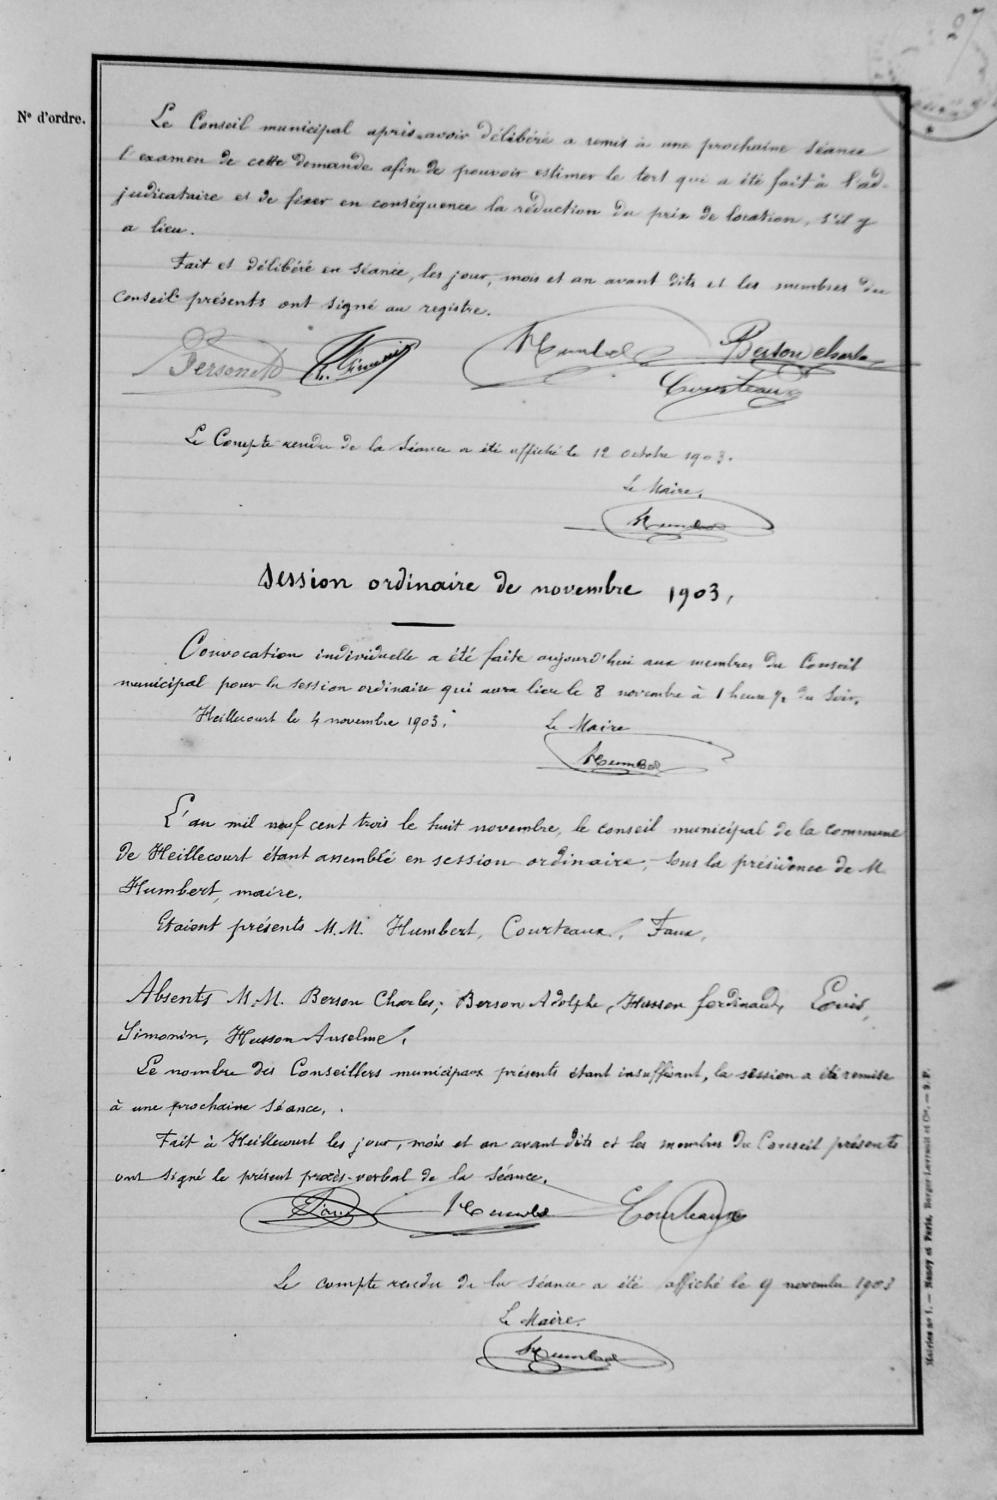 27
N° d'ordre.
Le Conseil municipal après avoir délibéré a remis à une prochaine séance
l'examen de cette demande afin de pouvoir estimer le tort qui a été fait à l'ad-
judicataire et de fixer en conséquence la réduction du prix de location, s'il y
a lieu.
Fait et délibéré en séance, les jour, mois et an avant dits et les membres du
Conseil présents ont signé au registre.
Humbert Berson Charles
Courteaux
Le Compte-rendu de la séance a été affiché le 12 octobre 1903.
Le Maire,
Humbert
Session ordinaire de novembre 1903.
Convocation individuelle a été faite aujourd'hui aux membres du Conseil
municipal pour la session ordinaire qui aura lieu le 8 novembre à 1 heure ½ du soir.
Heillecourt le 4 novembre 1903.
Le Maire
Humbert
L'an mil neuf cent trois le huit novembre, le conseil municipal de la commune
de Heillecourt étant assemblé en session ordinaire, sous la présidence de M.
Humbert, maire.
Etaient présents M.M. Humbert, Courteaux, Faux,
Absents M.M. Berson Charles, Berson Adolphe, Husson ferdinand, Louis,
Simonin, Husson Anselme.
Le nombre des Conseillers municipaux présents étant insuffisant, la session a été remise
à une prochaine séance.
Fait à Heillecourt les jour, mois et an avant dits et les membres du Conseil présents
ont signé le présent procès-verbal de la séance.
Faux Humbert Courteaux
Le compte rendu de la séance a été affiché le 9 novembre 1903
Le Maire.
Humbert
Mairies n° 1. — Nancy et Paris, Berger-Levrault et Cie. — S. P.